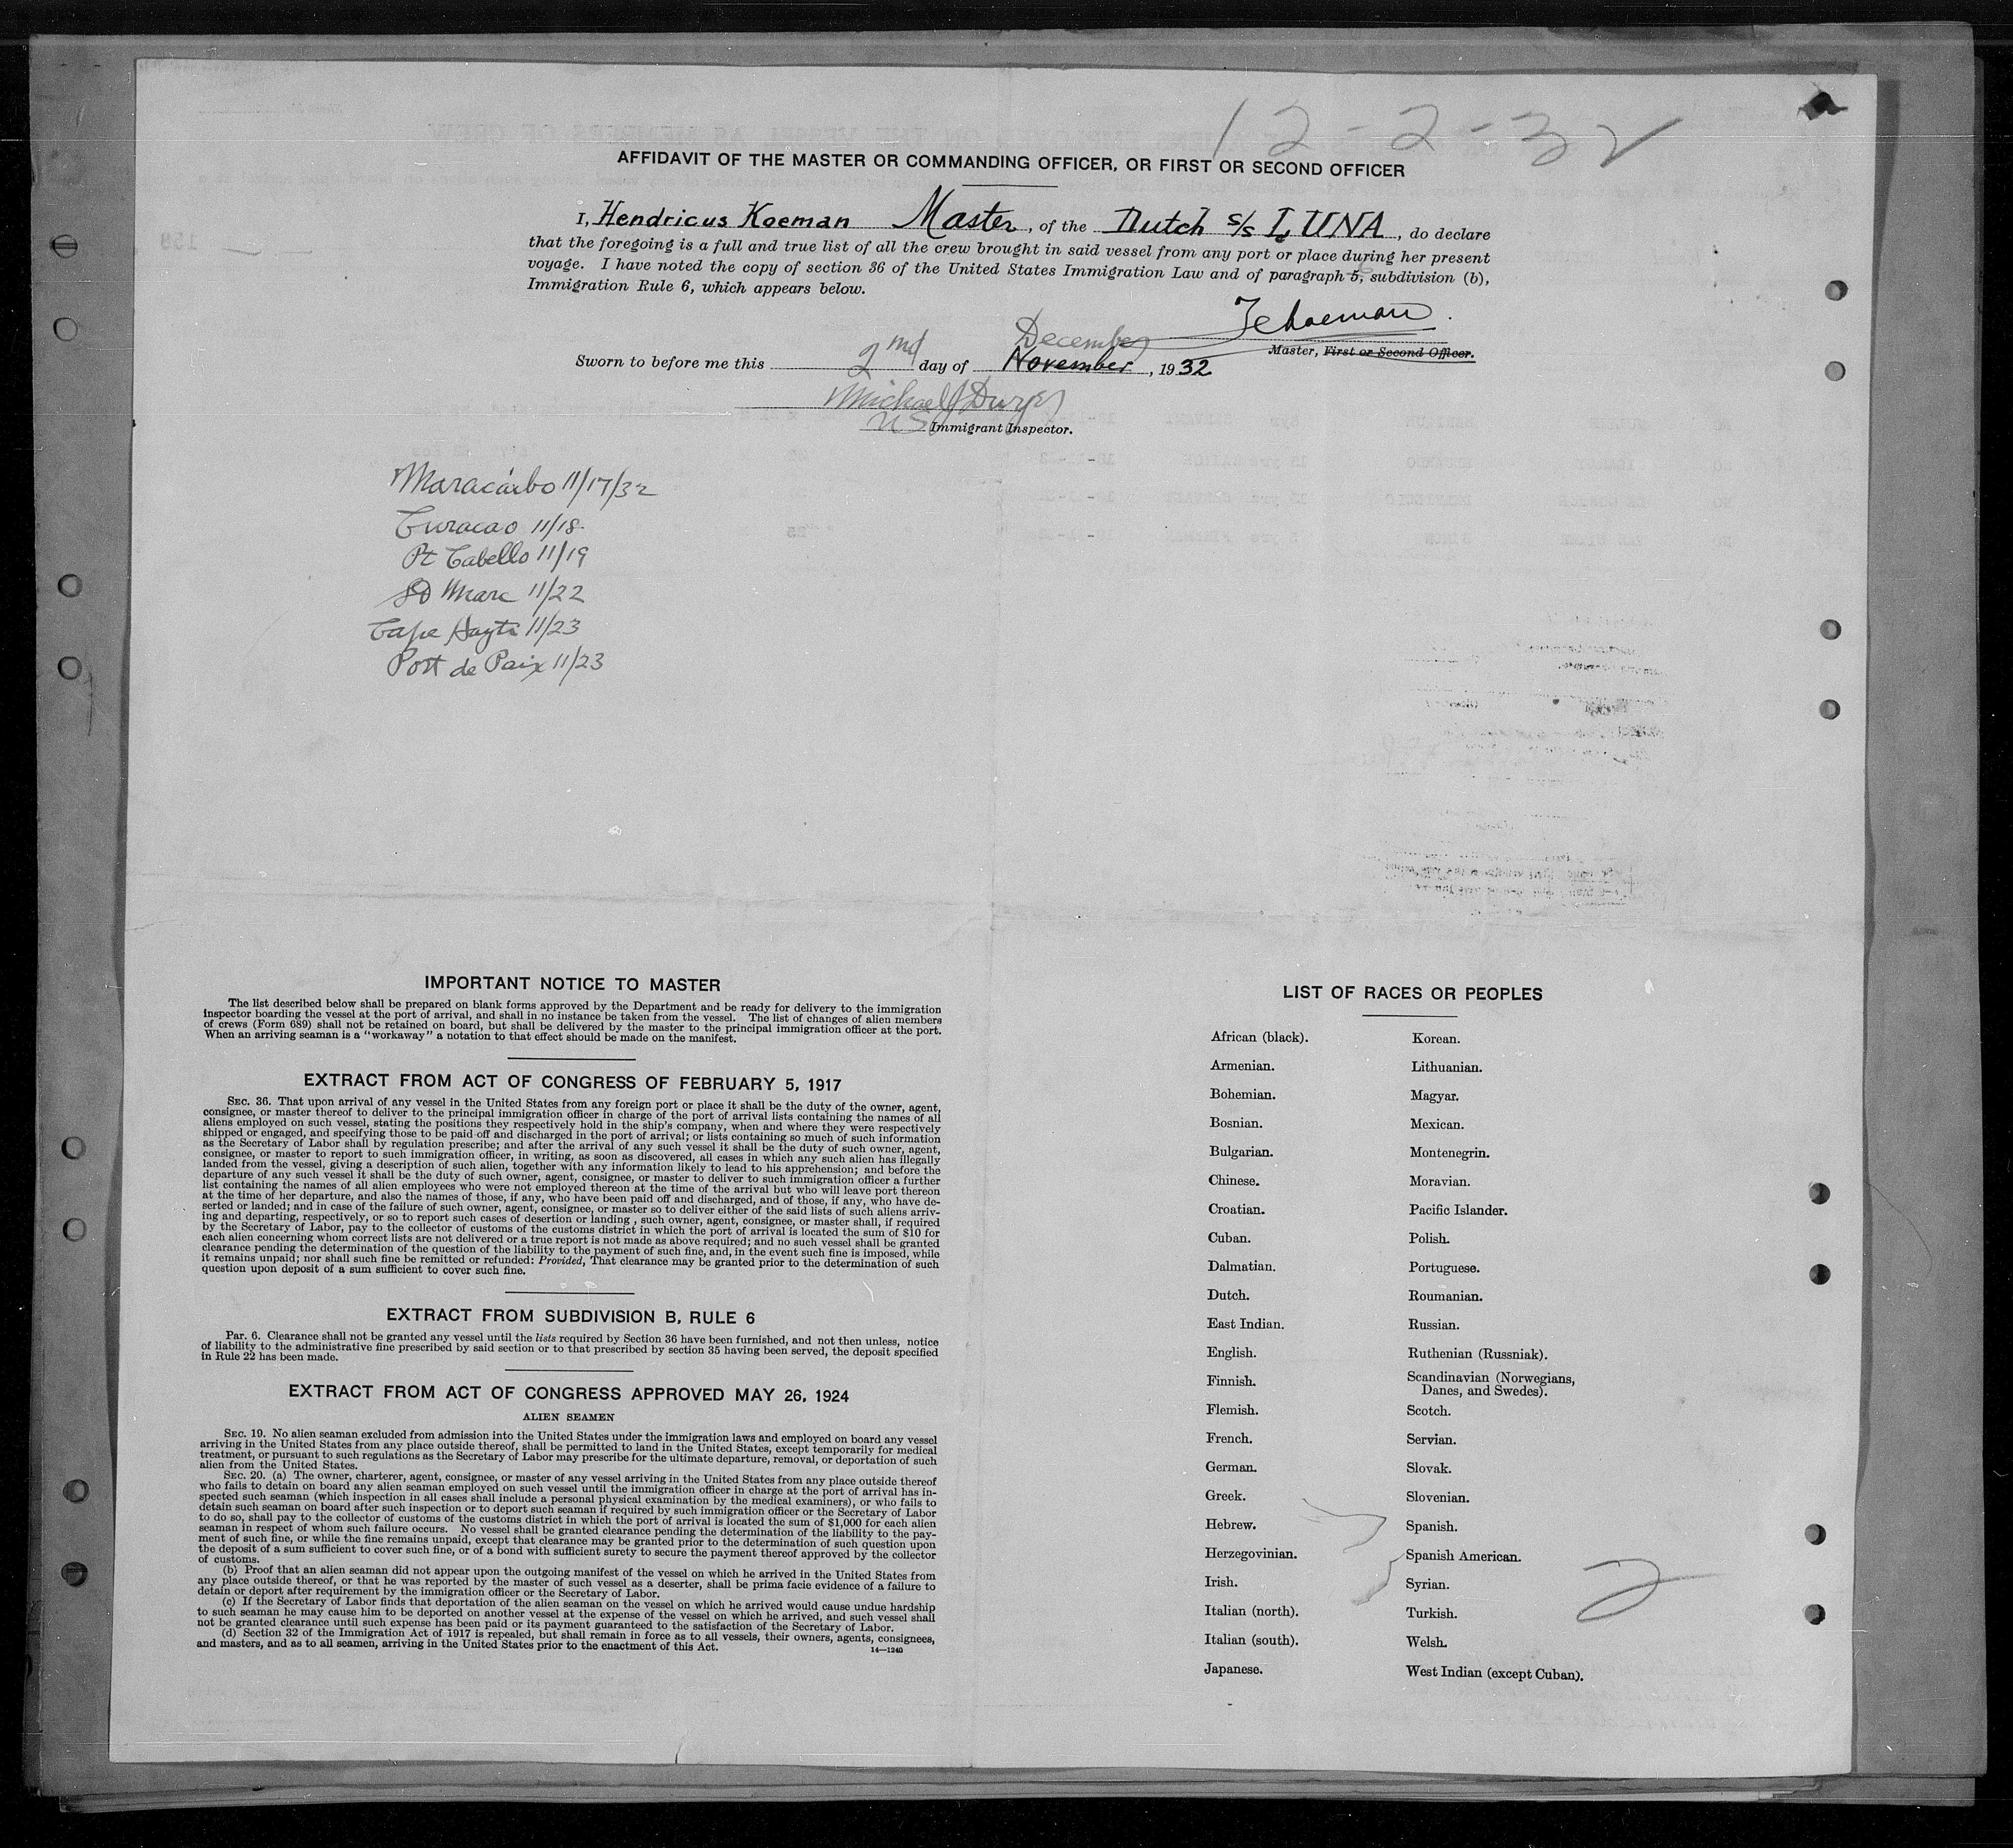 12-2-32
AFFIDAVIT OF THE MASTER OR COMMANDING OFFICER, OR FIRST OR SECOND OFFICER
I, Hendricus Koeman Master, of the Dutch s/s LUNA, do declare
that the foregoing is a full and true list of all the crew brought in said vessel from any port or place during her present
voyage. I have noted the copy of section 36 of the United States Immigration Law and of paragraph 5, subdivision (b),
Immigration Rule 6, which appears below.
Koeman
Master, First or Second Officer.
December
Sworn to before me this 2nd day of November, 1932
Michael J Dwyer
US Immigrant Inspector.
Maracaibo 11/17/32
Curacao 11/18
Pt Cabello 11/19
St Marc 11/22
Cape Hayti 11/23
Port de Paix 11/23
IMPORTANT NOTICE TO MASTER
The list described below shall be prepared on blank forms approved by the Department and be ready for delivery to the immigration
inspector boarding the vessel at the port of arrival, and shall in no instance be taken from the vessel. The list of changes of alien members
of crews (Form 689) shall not be retained on board, but shall be delivered by the master to the principal immigration officer at the port.
When an arriving seaman is a "workaway" a notation to that effect should be made on the manifest.
EXTRACT FROM ACT OF CONGRESS OF FEBRUARY 5, 1917
SEC. 36. That upon arrival of any vessel in the United States from any foreign port or place it shall be the duty of the owner, agent,
consignee, or master thereof to deliver to the principal immigration officer in charge of the port of arrival lists containing the names of all
aliens employed on such vessel, stating the positions they respectively hold in the ship's company, when and where they were respectively
shipped or engaged, and specifying those to be paid off and discharged in the port of arrival; or lists containing so much of such information
as the Secretary of Labor shall by regulation prescribe; and after the arrival of any such vessel it shall be the duty of such owner, agent,
consignee, or master to report to such immigration officer, in writing, as soon as discovered, all cases in which any such alien has illegally
landed from the vessel, giving a description of such alien, together with any information likely to lead to his apprehension; and before the
departure of any such vessel it shall be the duty of such owner, agent, consignee, or master to deliver to such immigration officer a further
list containing the names of all alien employees who were not employed thereon at the time of the arrival but who will leave port thereon
at the time of her departure, and also the names of those, if any, who have been paid off and discharged, and of those, if any, who have de-
serted or landed; and in case of the failure of such owner, agent, consignee, or master so to deliver either of the said lists of such aliens arriv-
ing and departing, respectively, or so to report such cases of desertion or landing , such owner, agent, consignee, or master shall, if required
by the Secretary of Labor, pay to the collector of customs of the customs district in which the port of arrival is located the sum of $10 for
each alien concerning whom correct lists are not delivered or a true report is not made as above required; and no such vessel shall be granted
clearance pending the determination of the question of the liability to the payment of such fine, and, in the event such fine is imposed, while
it remains unpaid; nor shall such fine be remitted or refunded: Provided, That clearance may be granted prior to the determination of such
question upon deposit of a sum sufficient to cover such fine.
EXTRACT FROM SUBDIVISION B, RULE 6
Par. 6. Clearance shall not be granted any vessel until the lists required by Section 36 have been furnished, and not then unless, notice
of liability to the administrative fine prescribed by said section or to that prescribed by section 35 having been served, the deposit specified
in Rule 22 has been made.
EXTRACT FROM ACT OF CONGRESS APPROVED MAY 26, 1924
ALIEN SEAMEN
SEC. 19. No alien seaman excluded from admission into the United States under the immigration laws and employed on board any vessel
arriving in the United States from any place outside thereof, shall be permitted to land in the United States, except temporarily for medical
treatment, or pursuant to such regulations as the Secretary of Labor may prescribe for the ultimate departure, removal, or deportation of such
alien from the United States.
SEC. 20. (a) The owner, charterer, agent, consignee, or master of any vessel arriving in the United States from any place outside thereof
who fails to detain on board any alien seaman employed on such vessel until the immigration officer in charge at the port of arrival has in-
spected such seaman (which inspection in all cases shall include a personal physical examination by the medical examiners), or who fails to
detain such seaman on board after such inspection or to deport such seaman if required by such immigration officer or the Secretary of Labor
to do so, shall pay to the collector of customs of the customs district in which the port of arrival is located the sum of $1,000 for each alien
seaman in respect of whom such failure occurs. No vessel shall be granted clearance pending the determination of the liability to the pay-
ment of such fine, or while the fine remains unpaid, except that clearance may be granted prior to the determination of such question upon
the deposit of a sum sufficient to cover such fine, or of a bond with sufficient surety to secure the payment thereof approved by the collector
of customs.
(b) Proof that an alien seaman did not appear upon the outgoing manifest of the vessel on which he arrived in the United States from
any place outside thereof, or that he was reported by the master of such vessel as a deserter, shall be prima facie evidence of a failure to
detain or deport after requirement by the immigration officer or the Secretary of Labor.
(c) If the Secretary of Labor finds that deportation of the alien seaman on the vessel on which he arrived would cause undue hardship
to such seaman he may cause him to be deported on another vessel at the expense of the vessel on which he arrived, and such vessel shall
not be granted clearance until such expense has been paid or its payment guaranteed to the satisfaction of the Secretary of Labor.
(d) Section 32 of the Immigration Act of 1917 is repealed, but shall remain in force as to all vessels, their owners, agents, consignees,
and masters, and as to all seamen, arriving in the United States prior to the enactment of this Act.
14—1240
LIST OF RACES OR PEOPLES
African (black).
Armenian.
Bohemian.
Bosnian.
Bulgarian.
Chinese.
Croatian.
Cuban.
Dalmatian.
Dutch.
East Indian.
English.
Finnish.
Flemish.
French.
German.
Greek.
Hebrew.
Herzegovinian.
Irish.
Italian (north).
Italian (south).
Japanese.
Korean.
Lithuanian.
Magyar.
Mexican.
Montenegrin.
Moravian.
Pacific Islander.
Polish.
Portuguese.
Roumanian.
Russian.
Ruthenian (Russniak).
Scandinavian (Norwegians,
Danes, and Swedes).
Scotch.
Servian.
Slovak.
Slovenian.
Spanish.
Spanish American.
Syrian.
Turkish.
Welsh.
West Indian (except Cuban).
2